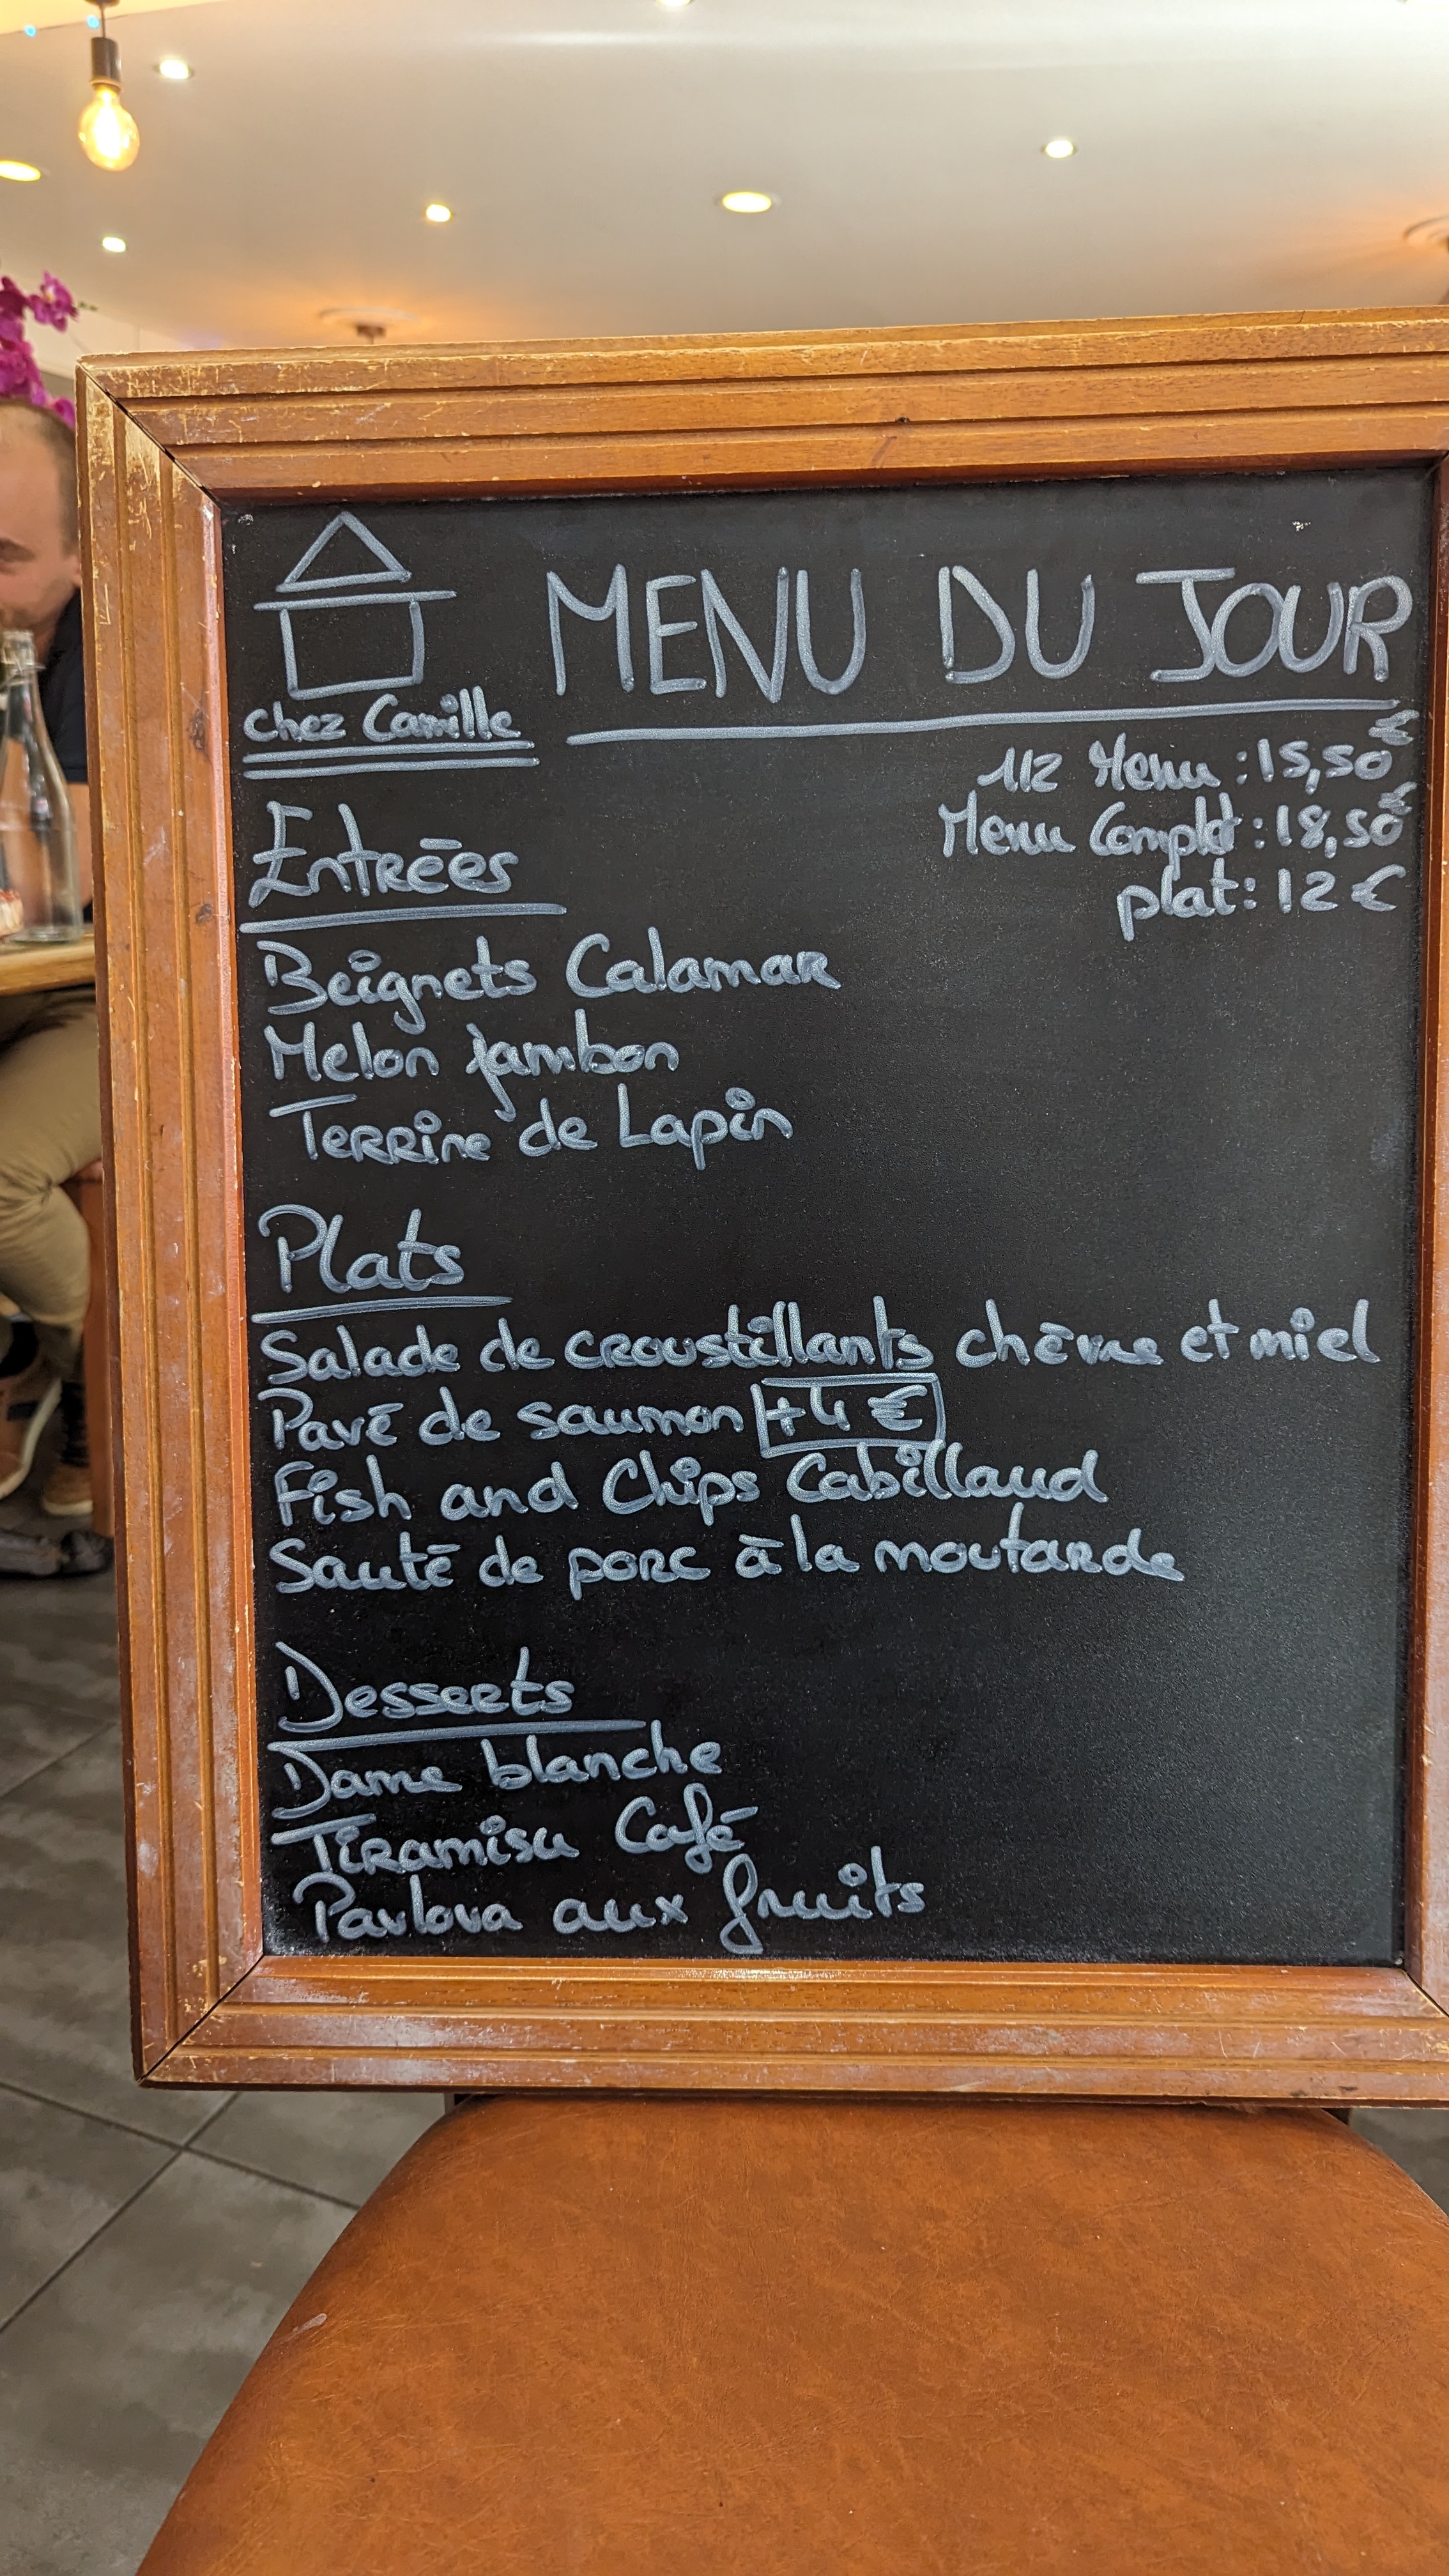 MENU DU JOUR
chez Camille
1/2 Menu : 15,50€
Menu Complet : 18,50€
plat : 12 €
Entrées
Beignets Calamar
Melon jambon
Terrine de Lapin
Plats
Salade de croustillants chèvre et miel
Pavé de saumon +4 €
Fish and Chips Cabillaud
Sauté de porc à la moutarde
Desserts
Dame blanche
Tiramisu Café
Pavlova aux fruits